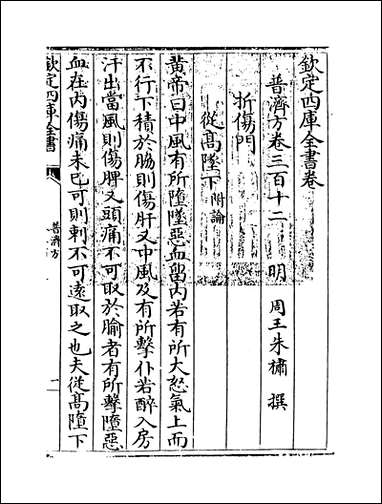 欽定四庫全書卷
普濟方卷三百十二 明 周王朱橚 撰
折傷門
從髙墜下附論
黄帝曰中風有所墮墜惡血留内若有所大怒氣上而
不行下積於脇則傷肝又中風及有所擊仆若醉入房
汗出當風則傷脾又頭痛不可取於腧者有所擊墮惡
血在内傷痛未已可則刺不可遠取之也夫從髙墮下
欽定四庫全書
普濟方
一